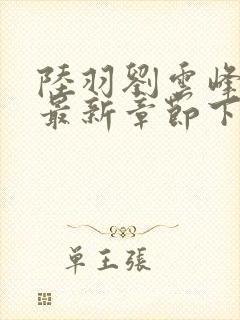 陸羽劉雲峰
最新章節下
单王張